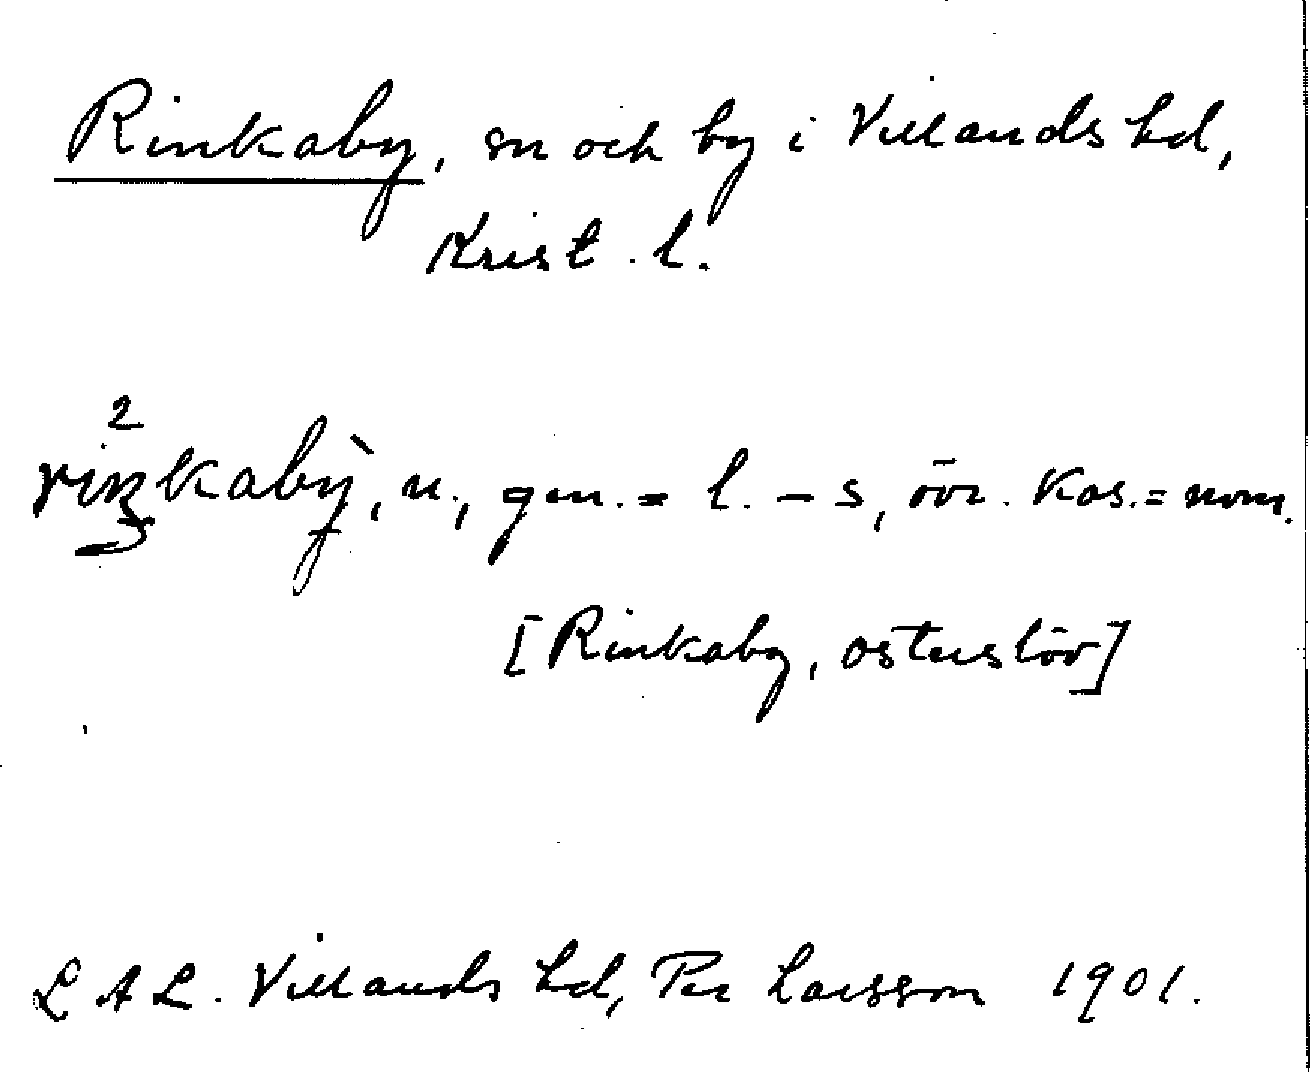 Rinkaby, sn och by i Villands hd,
Krist. l.
2
riŋkabỳ, n., gen. = l. – s, övr. kas. = nom.
[Rinkaby,
L A L. Villands hd, Per Larsson 1901.